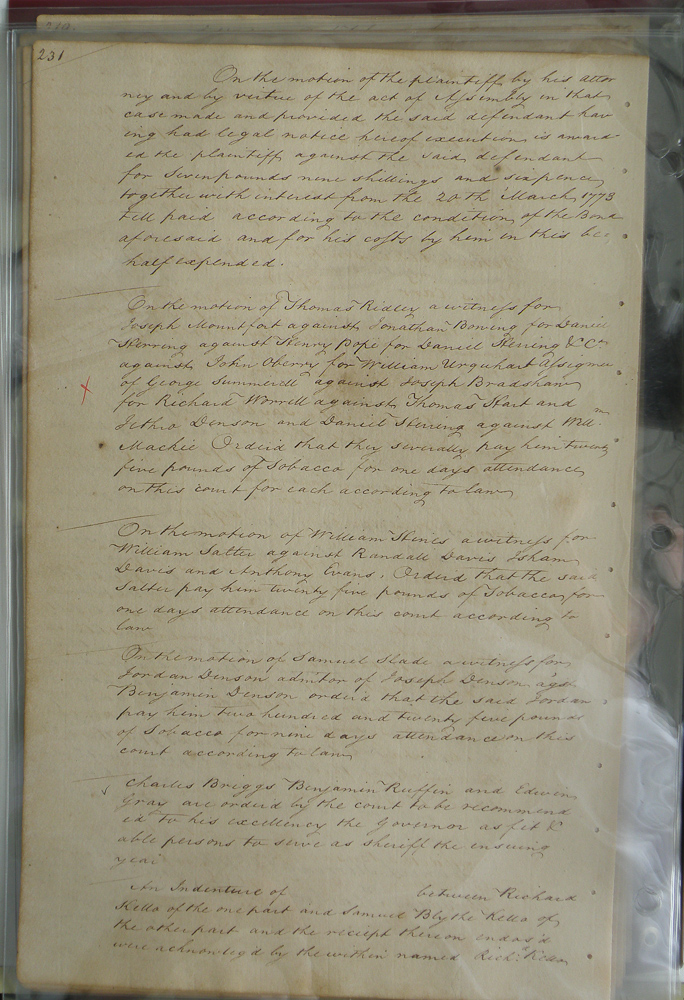 231
On the motion of the plaintiff by his attor
ney and by virtue of the act of Assembly in that
case made and provided the said defendant hav
ing had legal notice hereof execution is award
ed the plaintiff against the said defendant
for seven pounds nine shillings and sixpence
together with interest from the 20th March 1773
till paid according to the condition of the Bond
aforesaid and for his costs by him in this be
half expended.
On the motion of Thomas Ridley a witness for
Joseph Mountfort against Jonathan Bowing for Daniel
Herring against Henry Pope for Daniel Herring & Co
against John Oberry for William Urquhart Assignee
of George Summerell against Joseph Bradshaw
for Richard Worrell against Thomas Hart and
Jethro Denson and Daniel Herring against Willm
Mackie Orderd that they severally pay him twenty
five pounds of Tobacco for one days attendance
on this court for each according to law
On the motion of William Hines a witness for
William Salter against Randall Davis Isham
Davis and Anthony Evans, Orderd that the said
Salter pay him twenty five pounds of Tobacco for
one days attendance on this court according to
law
On the motion of Samuel Slade a witness for
Jordan Denson admitor of Joseph Denson agst
Benjamin Denson orderd that the said Jordan
pay him two hundred and twenty five pounds
of Tobacco for nine days attendance on this
court according to law
Charles Briggs Benjamin Ruffin and Edwin
Gray are orderd by the court to be recommend
ed to his excellency the Governor as fit &
able persons to serve as sheriff the ensuing
year
An Indenture of between Richard
Kello of the one part and Samuel Blythe Kello of
the other part and the reciept thereon endors'd
were acknowleg'd by the within named Richd Kello